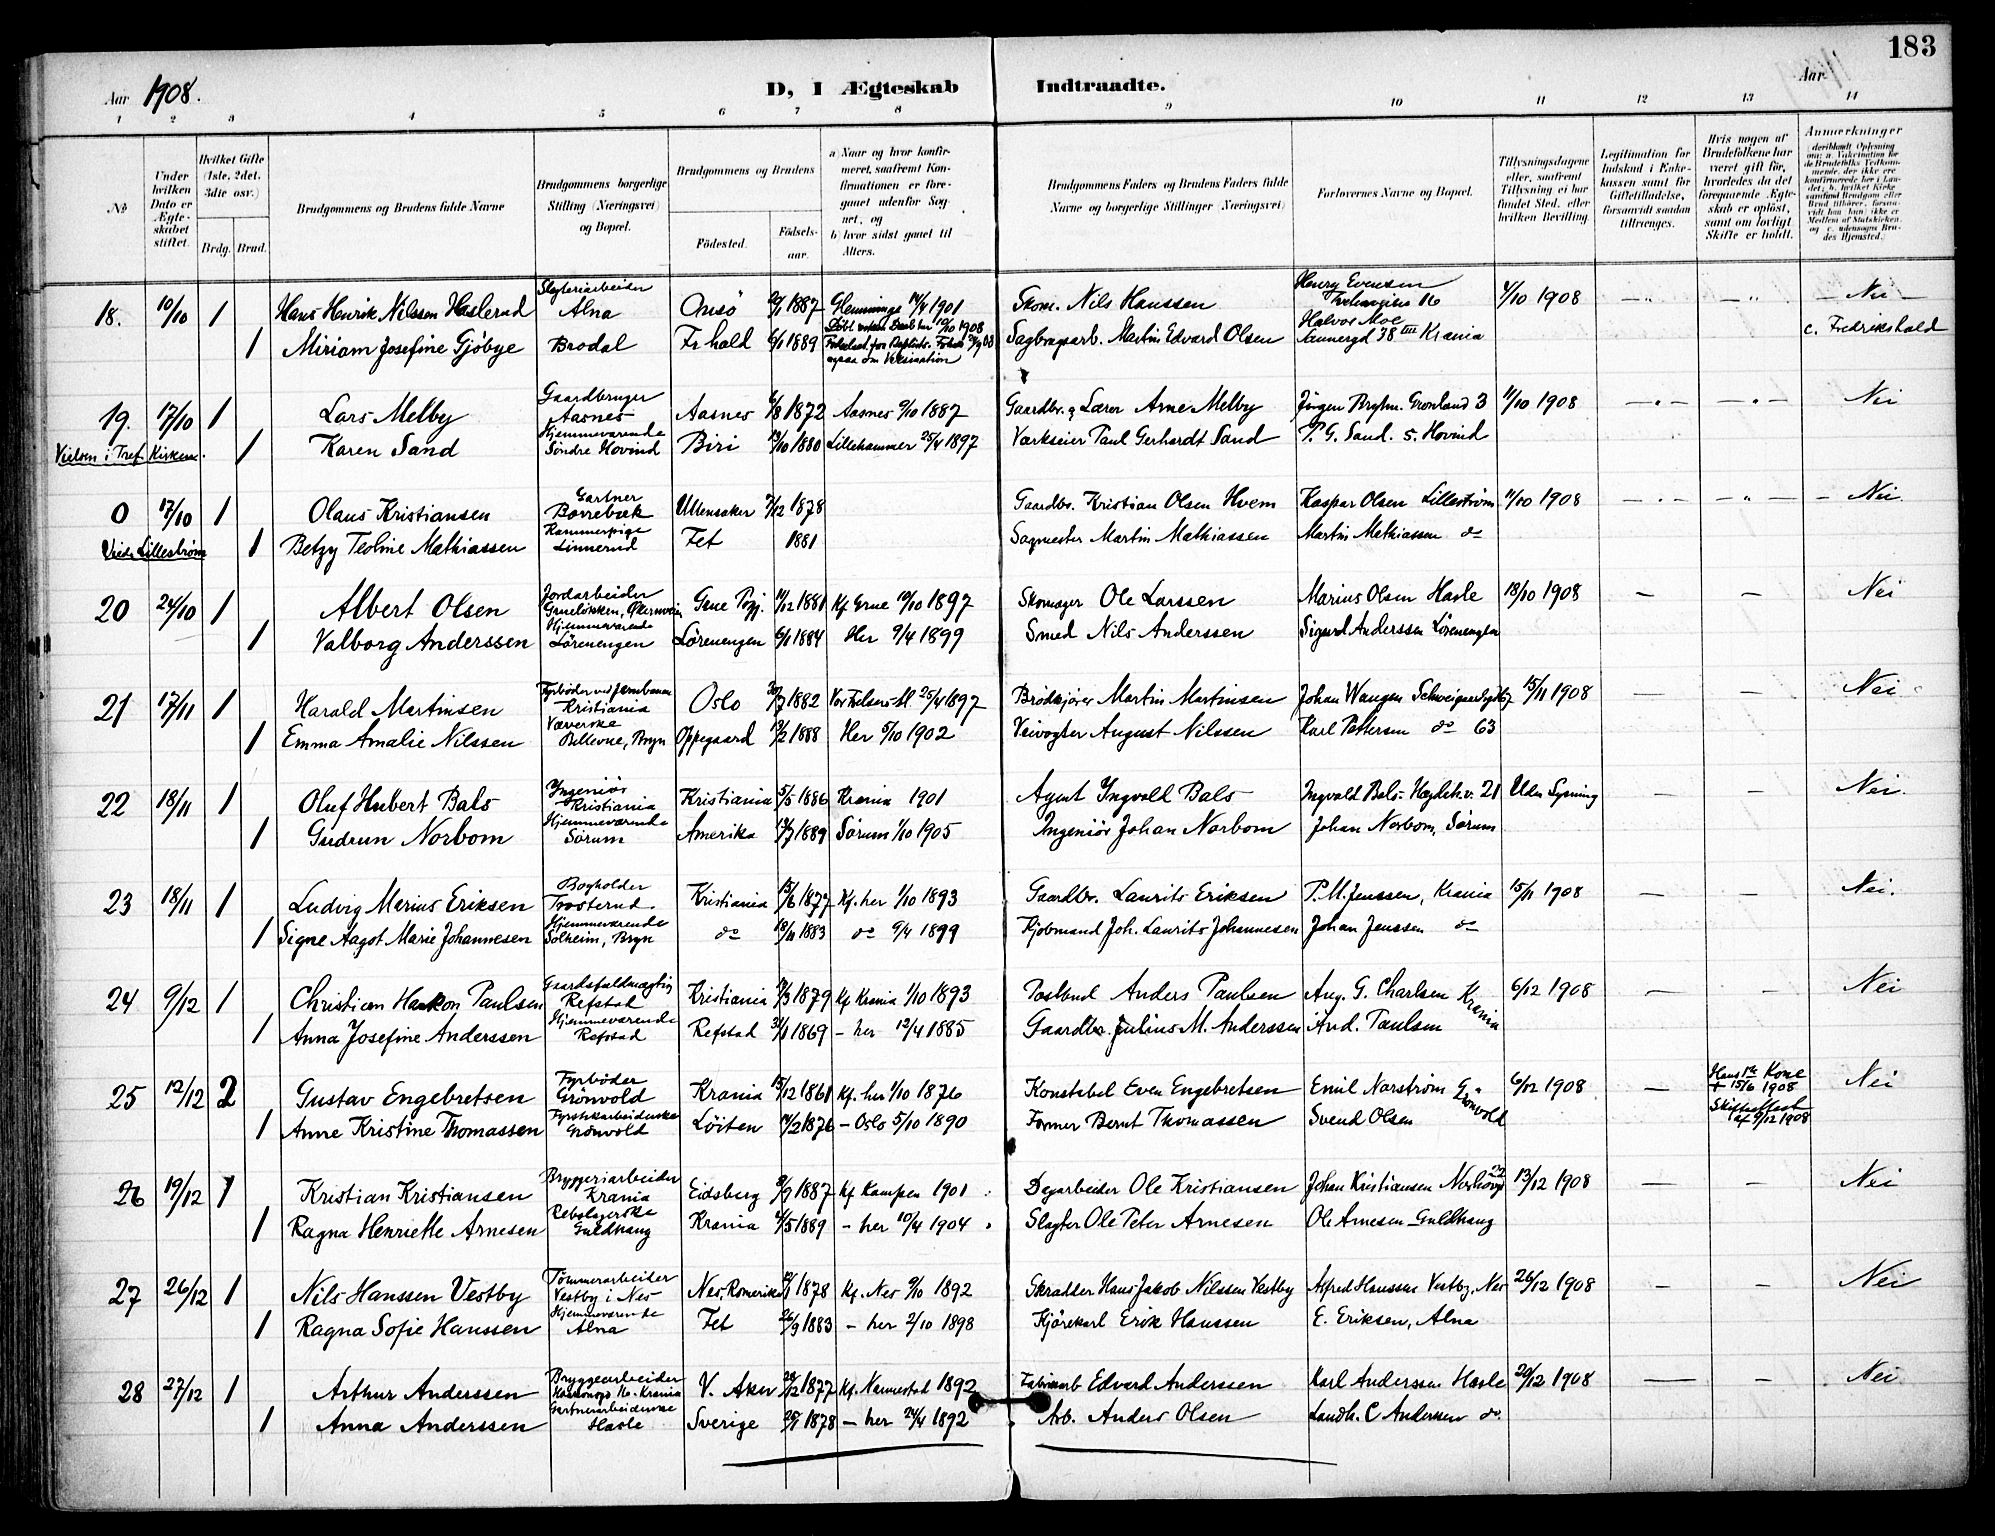 183
Aar 1908. D, I Ægteskab Indtraadte. Aar
1 2 3 4 5 6 7 8 9 10 11 12 13 14
№
Under hvilken Dato er Ægteskabet stiftet.
Hvilket Gifte (1ste, 2det, 3die osv.)
Brdg. Brud.
Brudgommens og Brudens fulde Navne
Brudgommens borgerlige Stilling (Næringsvei) og Bopæl.
Brudgommens og Brudens
Födested. Födselsaar.
a) Naar og hvor konfirmeret, saafremt Konfirmationen er foregaaet udenfor Sognet, og
b) hvor sidst gaaet til Alters.
Brudgommens Faders og Brudens Faders fulde Navne og borgerlige Stillinger (Næringsvei)
Forlovernes Navne og Bopæl.
Tillysningsdagene eller, saafremt Tillysning ei har fundet Sted, efter hvilken Bevilling.
Legitimation for Indskud i Enkekassen samt for Giftetilladelse, forsaavidt saadan tiltrænges.
Hvis nogen af Brudefolkene har været gift för, hvorledes da det foregaaende Ægteskab er oplöst, samt om lovligt Skifte er holdt.
Anmærkninger
18. 10/10 1 Hans Henrik Nilssen Haslerud Slagteriarbeider Alna Onsö 1887 Glemminge 1901 Skom. Nils Hanssen Henry Evensen 4/10 1908 Nei
1 Miriam Josefine Gjöbye Brodal Fr.hald 1889 Sagbrugsarb. Martin Edvard Olsen Halvor Moe Sannergd 38 III Krania c. Fredrikshald
19. 17/10 1 Lars Melby Gaardbruger Aasnes Aasnes 1872 Aasnes 9/10 1887 Gaardbr. & Lærer Arne Melby Jörgen Bryhn. Grønland 3 11/10 1908 Nei
Vielsen i Tref. Kirken. 1 Karen Sand Hjemmeværende Söndre Hovind Biri 1880 Lillehammer 25/4 1897 Værkseier Paul Gerhardt Sand P. G. Sand. S. Hovind
0 17/10 1 Olaus Kristiansen Gartner Borrebæk Ullensaker 1878 Gaardbr. Kristian Olsen Hvem Kaspar Olsen Lillestrøm 11/10 1908 Nei.
Viede Lillestrøm 1 Betzy Teoline Mathiassen Kammerpige Linnerud Fet 1881 Sagmester Martin Mathiassen Martin Mathiassen do
20 24/10 1 Albert Olsen Jordarbeider Grue 1881 Kf. Grue 10/10 1897 Skomager Ole Larssen Marius Olsen Hasle 18/10 1908 — — Nei
1 Valborg Anderssen Hjemmeværende Lörenengen Lörenengen 6/1 1884 Her 9/4 1899 Smed Nils Anderssen Sigurd Anderssen Lörenengen
21 17/11 1 Harald Martinsen Fyrbøder ved Jernbanen Kristiania Oslo 1882 Vor Frelsers M. 25/4 1897 Brödkjörer Martin Martinsen Johan Wangen 15/11 1908 — — Nei
1 Emma Amalie Nilssen Væverske Bellevue, Bryn Oppegaard 1888 Her 5/10 1902 Veivogter August Nilssen Karl Pettersen do 63
22 18/11 1 Oluf Hubert Bals Ingeniör Kristiania Kristiania 5/5 1886 Krania 1901 Agent Ingvald Bals Ingvald Bals 21 Uden lysning — — Nei.
1 Gudrun Norbom Hjemmeværende Sörum Amerika 1889 Sörum 1/10 1905 Ingeniör Johan Norbom Johan Norbom, Sörum
23 18/11 1 Ludvig Marius Eriksen Bogholder Trosterud Kristiania 15/6 1877 Kf. her 1/10 1893 Gaardbr. Laurits Eriksen P. M. Jenssen, Krania 15/11 1908 — — Nei.
1 Signe Aagot Marie Johannesen Hjemmeværende Solheim, Bryn do 18/11 1883 do 9/4 1899 Kjöbmand Joh. Laurits Johannesen Johan Jenssen do
24 9/12 1 Christian Haakon Paulsen Gaardsfuldmægtig Refstad Kristiania 1879 Kf Krania 1/10 1893 Postbud Anders Paulsen Aug. G. Charlsen Krania 6/12 1908 — — Nei
1 Anna Josefine Anderssen Hjemmeværende Refstad Refstad 1869 – her 12/4 1885 Gaardbr. Julius M. Anderssen And. Paulsen
25 12/12 2 Gustav Engebretsen Fyrbøder Grönvold Krania 15/12 1861 Kf. her 1/10 1876 Konstabel Even Engebretsen Emil Norström Grönvold 6/12 1908 — Hans 1ste Kone + 15/6 1908 Skifteattest af 9/12 1908 Nei
1 Anne Kristine Thomassen Fyrstikarbeiderske Grönvold Löiten 1876 – Oslo 5/10 1890 Former Bernt Thomassen Svend Olsen
26 19/12 1 Kristian Kristiansen Bryggeriarbeider Krania Eidsberg 1887 Kf Kampen 1901 Dagarbeider Ole Kristiansen Johan Kristiansen 13/12 1908 — — Nei
1 Ragna Henriette Arnesen Guldhaug Krania 1889 – her 10/4 1904 Slagter Ole Peter Arnesen Ole Arnesen – Guldhaug
27 26/12 1 Nils Hanssen Vestby Tömmerarbeider Vestby i Nes Nes, Romerike 1878 Kf. Nes 9/10 1892 Skrædder Hans Jakob Nilssen Vestby Alfred Hanssen Vestby, Nes 26/12 1908 — — Nei
1 Ragna Sofie Hanssen Hjemmeværende Alna Fet 26/9 1883 – her 2/10 1898 Kjörekarl Erik Hanssen E. Eriksen, Alna
28 27/12 1 Arthur Anderssen Bryggearbeider Krania V. Aker 1877 Kf. 1892 Fabrikarb Edvard Anderssen Karl Anderssen Hasle 20/12 1908 — — Nei
1 Anna Anderssen Gartnerarbeiderske Hasle Sverige 1878 – her 24/4 1892 Arb. Anders Olsen Landh. C Andersen do.